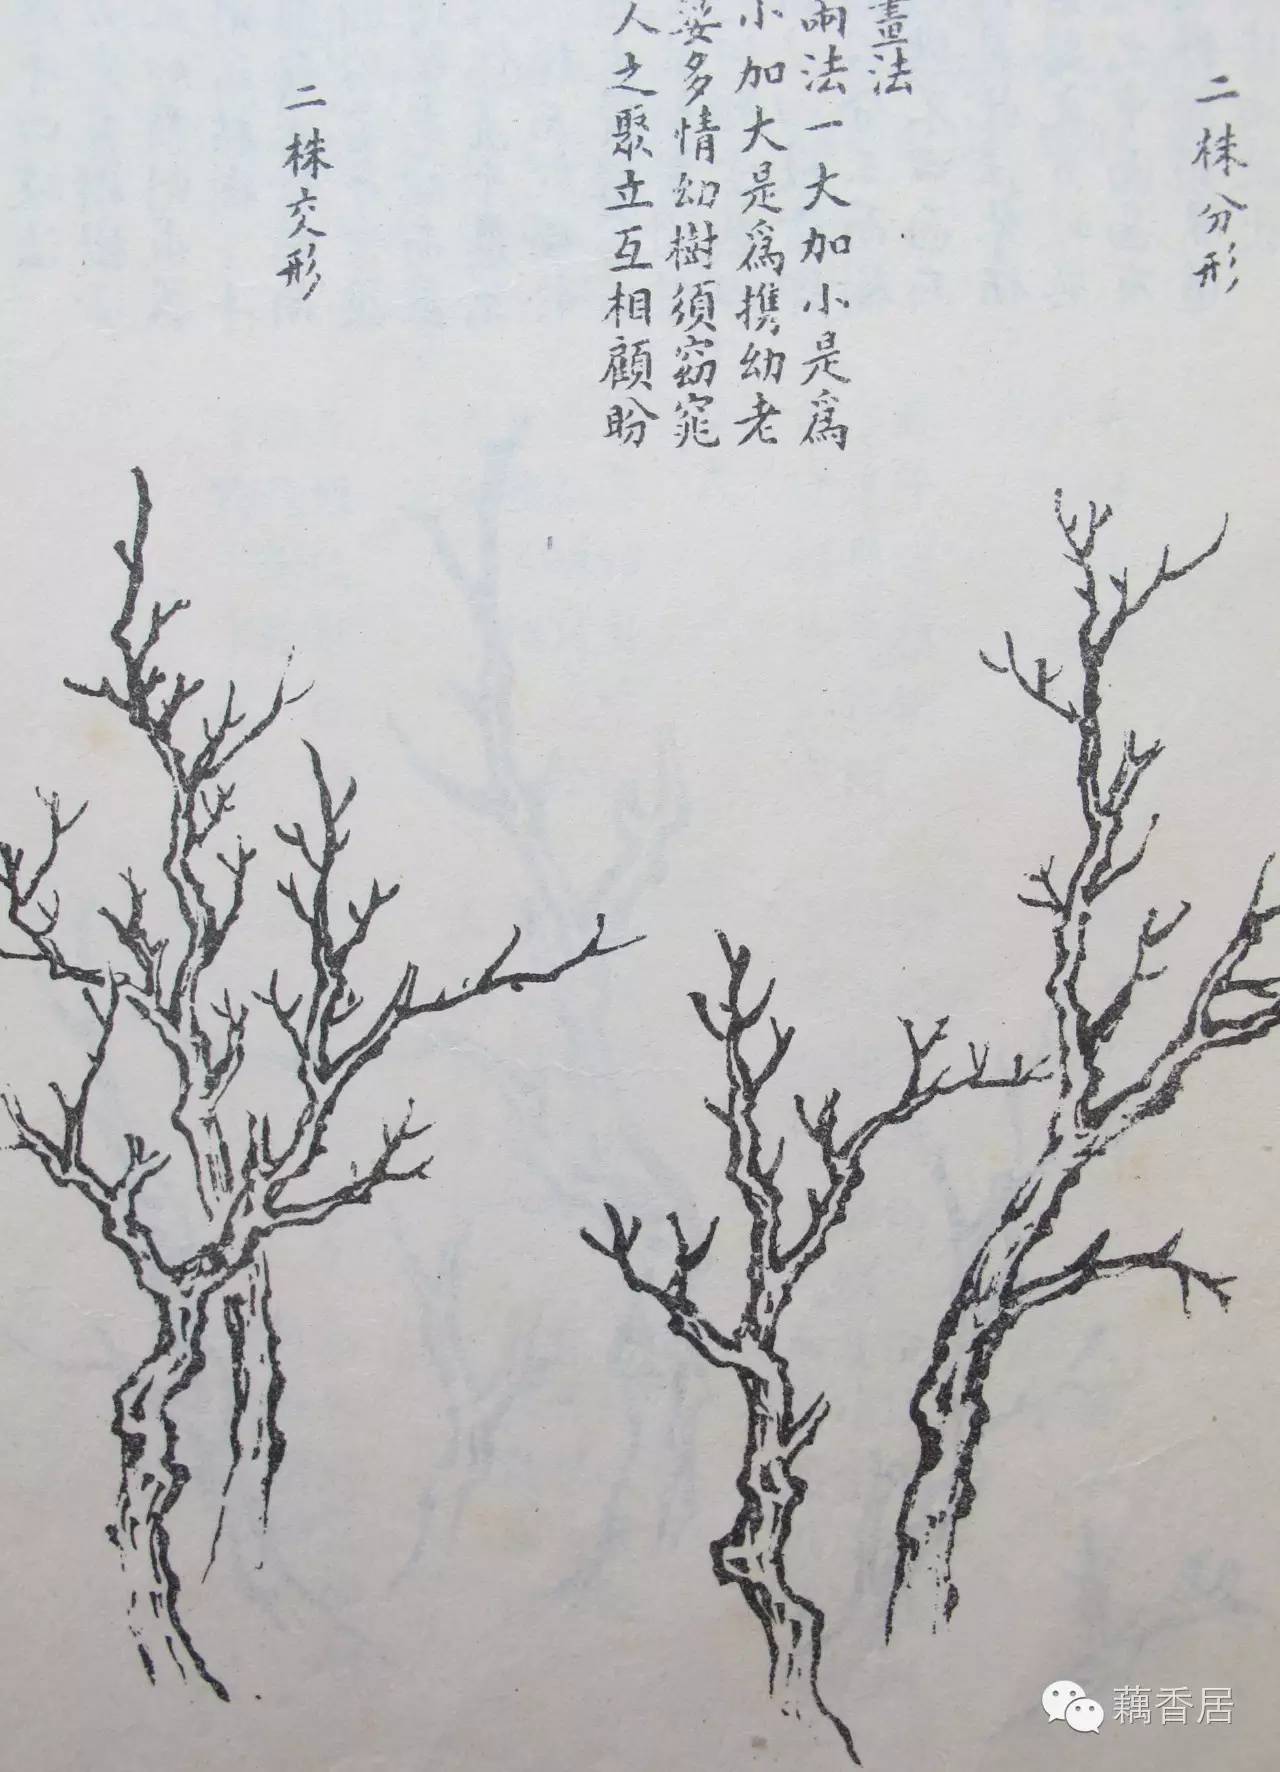 二株分形
畫法
兩法一大加小是爲
小加大是爲携幼老
婆多情幼樹須窈窕
人之聚立互相顧盼
二株交形
藕香居